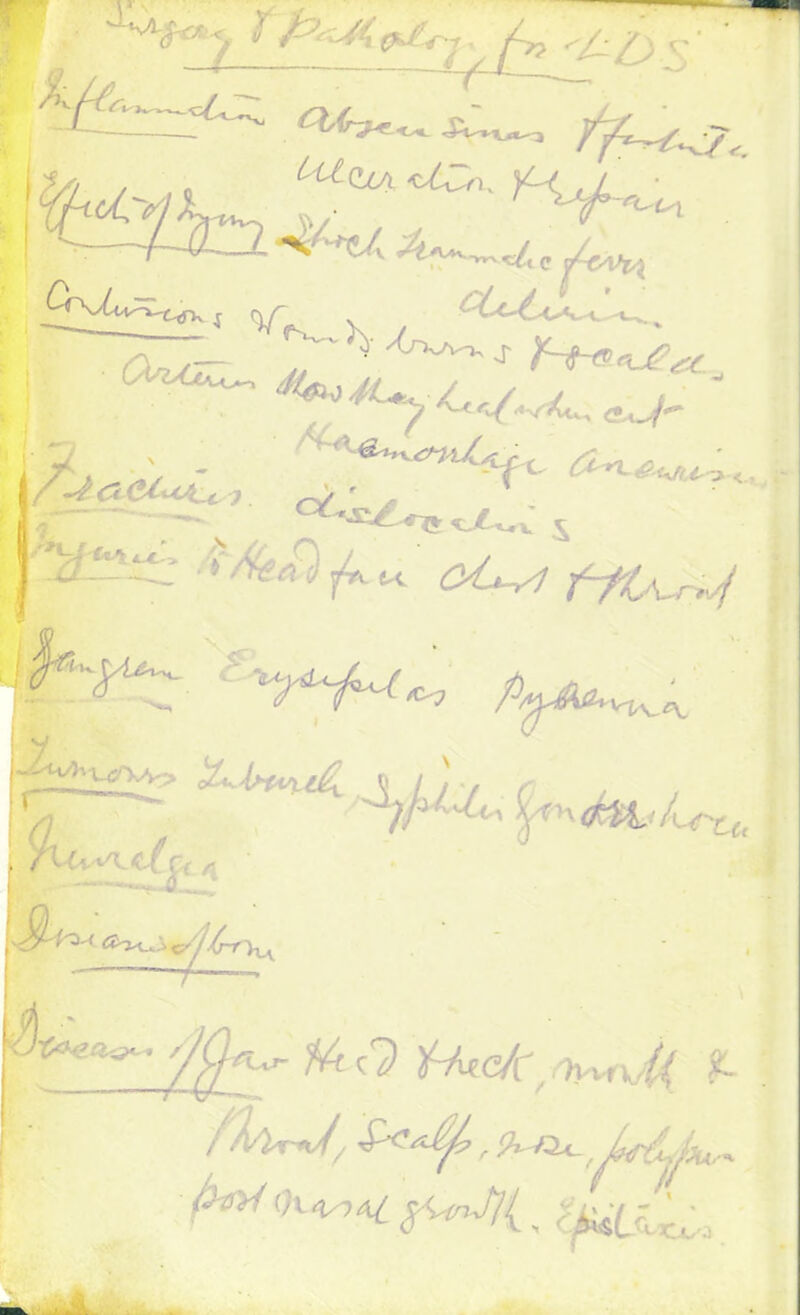 Surgery & Pathology for LDS
Inflammation Abscess Sinus & fistula
Ulceration & Repair
Effects of Injury Shock Traumatic fever
delirium
Contusions Wounds burns & scalds
Arteries How they heal when cut
Haemorrhage Aneurism
Fractures dislocations
Injuries to Head face chest & throat
Gangrene Erysipelas Pyaemia
Tumours Tubercle, Syphilis Gonorrhoea
Neuralgia
Diseases of bone
Diseases of Jaw Head & neck, mouth &
Throat, Scalp, nose, polypus
post nasal growth. Epistaxis